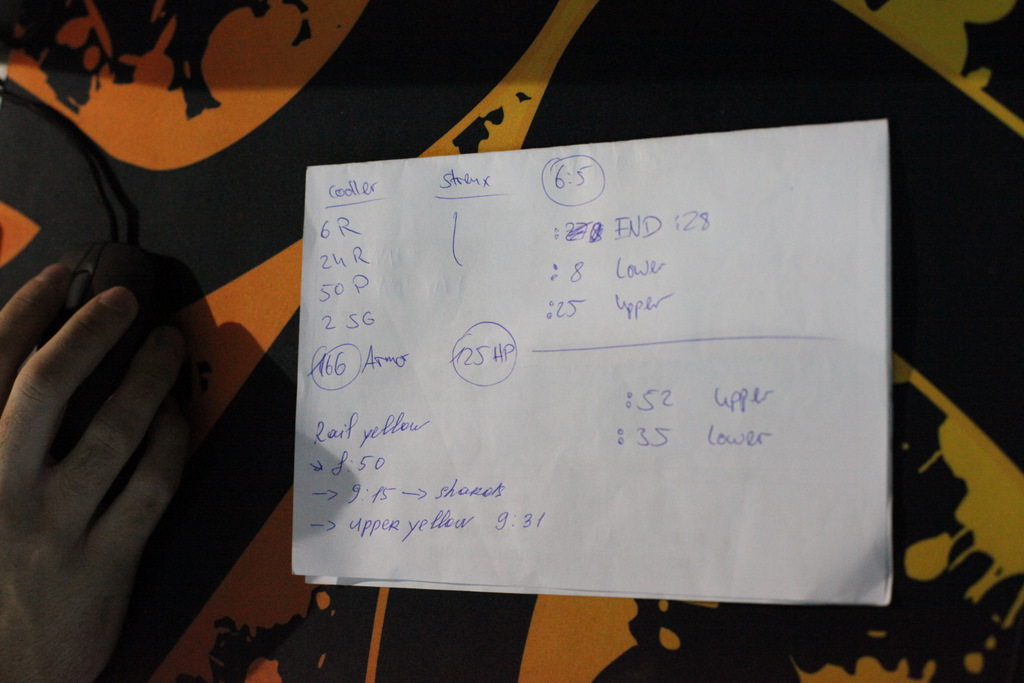 cooller strenx 6:5
6 R
24 R
50 P
2 SG
:END :28
:8 Lower
:25 Upper
166 Armor 125 HP
:52 Upper
:35 Lower
Rail yellow
→ 8:50
→ 9:15 → shards
→ upper yellow 9:31